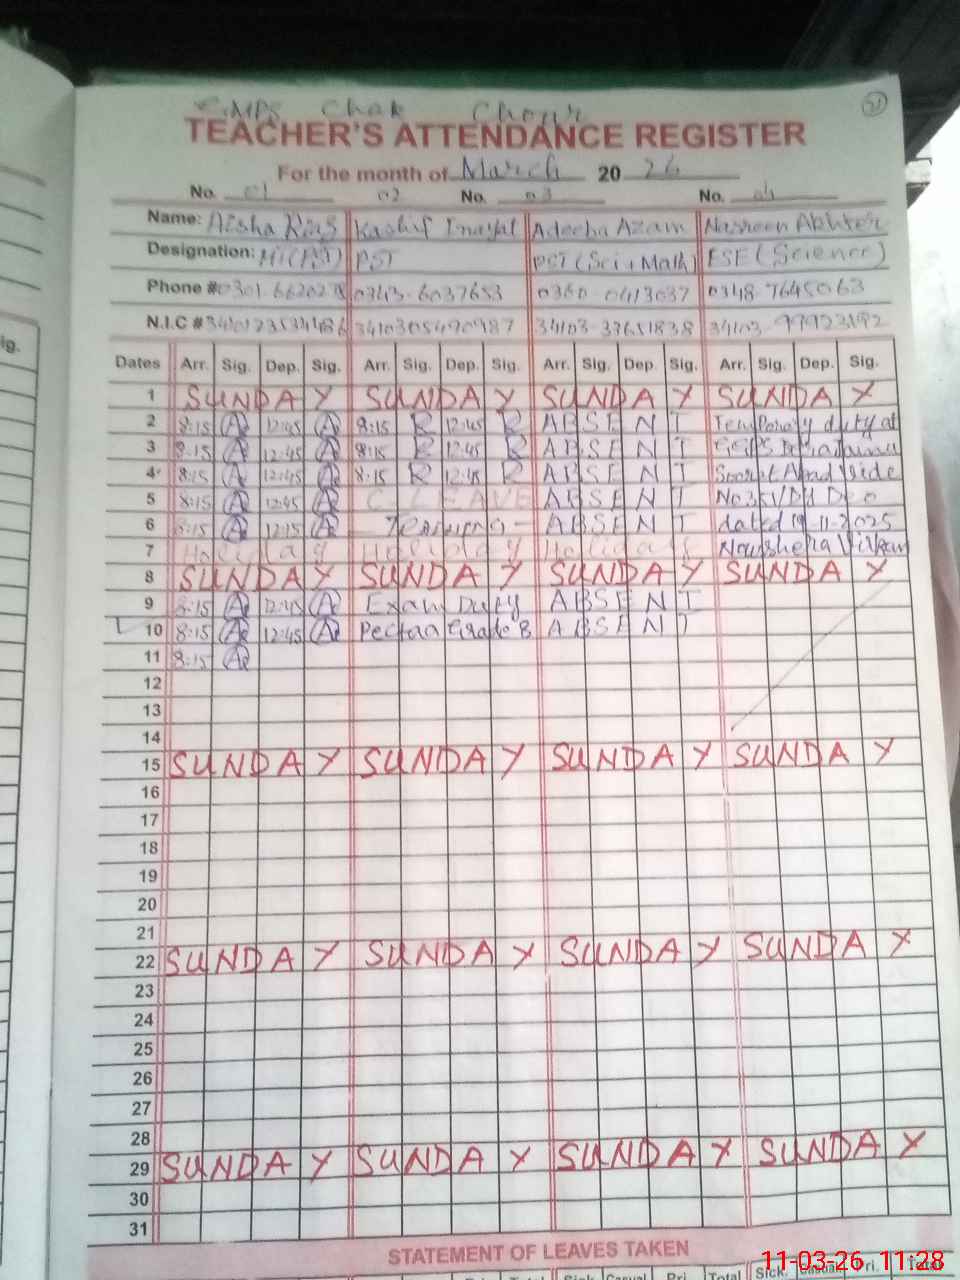 GMPS Chak Chour
51
TEACHER'S ATTENDANCE REGISTER
For the month of March 20 26
No. 01 02 No. 03 No. 04
Name: Aisha Riaz Kashif Inayat Adeeba Azam Nasreen Akhter
Designation: PST PST (Sci+Math) ESE (Science)
Phone # 0343-6037653 0360-0413037 0348-7645063
N.I.C # 3410305490987 34103-33651838 34103-99923192
Dates Arr. Sig. Dep. Sig. Arr. Sig. Dep. Sig. Arr. Sig. Dep. Sig. Arr. Sig. Dep. Sig.
1 SUNDAY SUNDAY SUNDAY SUNDAY
2 8:15 A 12:45 A 8:15 K 12:45 K ABSENT Temporary duty at
3 8:15 A 12:45 A 8:15 K 12:45 K ABSENT
4 8:15 A 12:45 A 8:15 K 12:45 K ABSENT
5 8:15 A 12:45 A C LEAVE ABSENT
6 8:15 A 12:15 A ABSENT dated 19-11-2025
7 Holiday Holiday Holiday Naushera Virkan
8 SUNDAY SUNDAY SUNDAY SUNDAY
9 8:15 A 12:45 A Exam Duty ABSENT
10 8:15 A 12:45 A Pectaa Grade 8 ABSENT
11 8:15 A
12
13
14
15 SUNDAY SUNDAY SUNDAY SUNDAY
16
17
18
19
20
21
22 SUNDAY SUNDAY SUNDAY SUNDAY
23
24
25
26
27
28
29 SUNDAY SUNDAY SUNDAY SUNDAY
30
31
STATEMENT OF LEAVES TAKEN
11-03-26 11:28